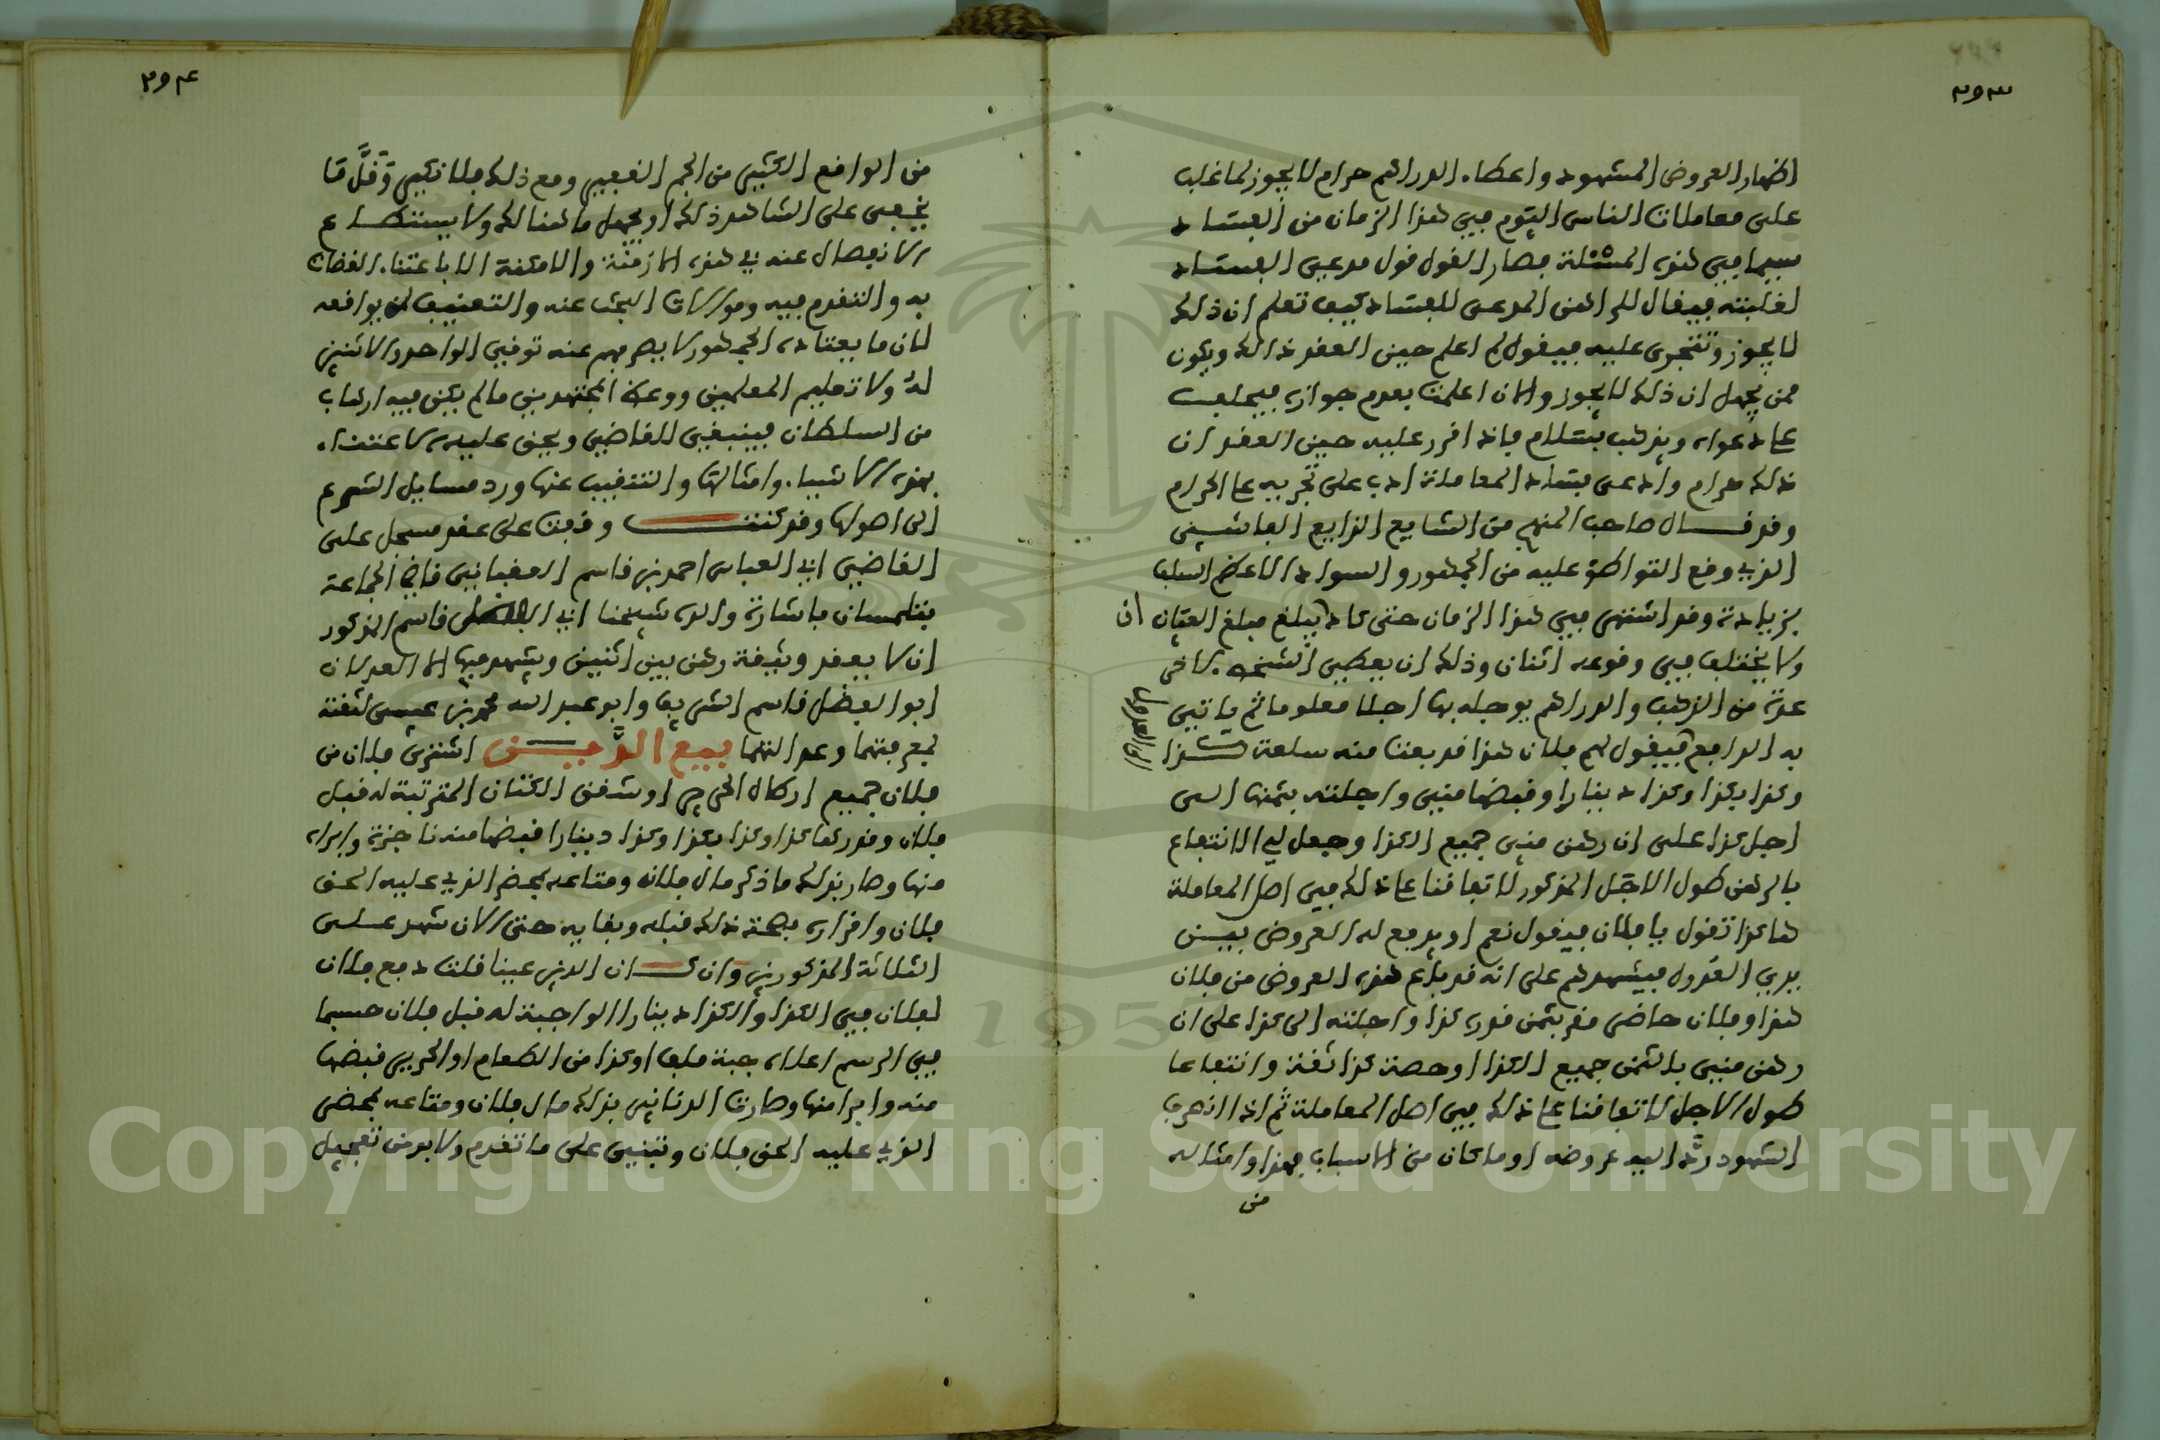 ٣٩٣
اظهار العروض المشهود واعطاء الدراهم حرام لا يجوز لما غلب
على معاملات الناس اليوم في هذا الزمان من الفساد
سيما في هذه المسئلة فصار القول قول مدعي الفساد
لغلبته فيقال للراهن المدعى للفساد كيف تعلم ان ذلك
لا يجوز وتتجرى عليه فيقول لم اعلم حين العقد ذلك ويكون
ممن يجهل ان ذلك لا يجوز والان اعلمت بعدم جوازه فيحلف
على دعواه ويذهب بسلام فاذا اقر عليه حين العقد ان
ذلك حرام وادعى فساد المعاملة ادب على تجريه على الحرام
وقد قال صاحب المنهج من الشايع الذايع الفاشي
الذي وقع التواطؤ عليه من الجمهور والسواد الاعظم السلف
بزيادة وقد اشتهر في هذا الزمان حتى كاد يبلغ مبلغ العيان ان
ولا يختلف في وقوعه اثنان وذلك ان يعطي الشخص لاخر
عدة من الذهب والدراهم يوجله بها اجلا معلوما ثم ياتي
الى العدول
به الدافع فيقول لهم فلان هذا قد بعت منه سلعة كذا
وكذا بكذا وكذا دينارا وقبضها مني واجلته بثمنها الى
اجل كذا على ان رهن مني جميع الكذا وجعل لي الانتفاع
بالرهن طول الاجل المذكور لاتفاقنا على ذلك في اصل المعاملة
هاكذا تقول يا فلان فيقول نعم او يدفع له العروض بين
يدي العدول فيشهدهم على انه قد باع هذه العروض من فلان
هذا وفلان حاضر مقر بثمن قدره كذا واجلته الى كذا على ان
رهن مني بالثمن جميع الكذا او حصة كذا ثقة وانتفاعا
طول الاجل لاتفاقنا على ذلك في اصل المعاملة ثم اذا انصرف
الشهود رد اليه عروضه او ما كان من الاسباب فهذا وامثاله
من
٣٩٤
من الواقع الكثير من الجم الغفير ومع ذلك فلا نكير وقل ما
يخفى على الشاهد ذلك او يجهل ما هنالك ولا يستطاع
الانفصال عنه في هذه الازمنة والامكنة الا باعتناء القضاة
به والتقدم فيه وموالات البحث عنه والتعنيف لمن يواقعه
لان ما يعتاده الجمهور لا يصرفهم عنه توقي الواحد والاثنين
له ولا تعليم المعلمين ووعظ المجتهدين ما لم يكن فيه ارهاب
من السلطان فينبغي للقاضي ويحق عليه الاعتناء
بهذه الاشياء وامثالها والتنقيب عنها ورد مسايل الشرع
الى اصولها وقد كنت وقفت على عقد مسجل على
القاضي ابي العباس احمد بن قاسم العقباني قاضي الجماعة
بتلمسان باشارة والده شيخنا ابي الفضل قاسم المذكور
ان لا يعقد وثيقة رهن بين اثنين ويشهد فيها الا العدلان
ابو الفضل قاسم الشريف وابو عبد الله محمد بن عيسى لثقته
لمعرفتهما وعدالتهما بيع الدين اشترى فلان من
فلان جميع ارطال الحرير او شقق الكتان المترتبة له قبل
فلان وقدرها كذا وكذا بكذا وكذا دينارا قبضها منه ناجزة وابراه
منها وصار بذلك ما ذكر مال فلان ومتاعه بمحضر الذي عليه الحق
فلان واقراره بصحة ذلك قبله وبقايه حتى الان شهد على
الثلاثة المذكورين وان كان الدين عينا قلت دفع فلان
لفلان في الكذا والكذا دينارا الواجبة له قبل فلان حسبما
في الرسم اعلاه جبة ملف او كذا من الطعام او الحرير قبضها
منه وابرا منها وصارت الدنانير بذلك مال فلان ومتاعه بمحضر
الذي عليه الحق فلان وتبني على ما تقدم ولا بد من تعجيل